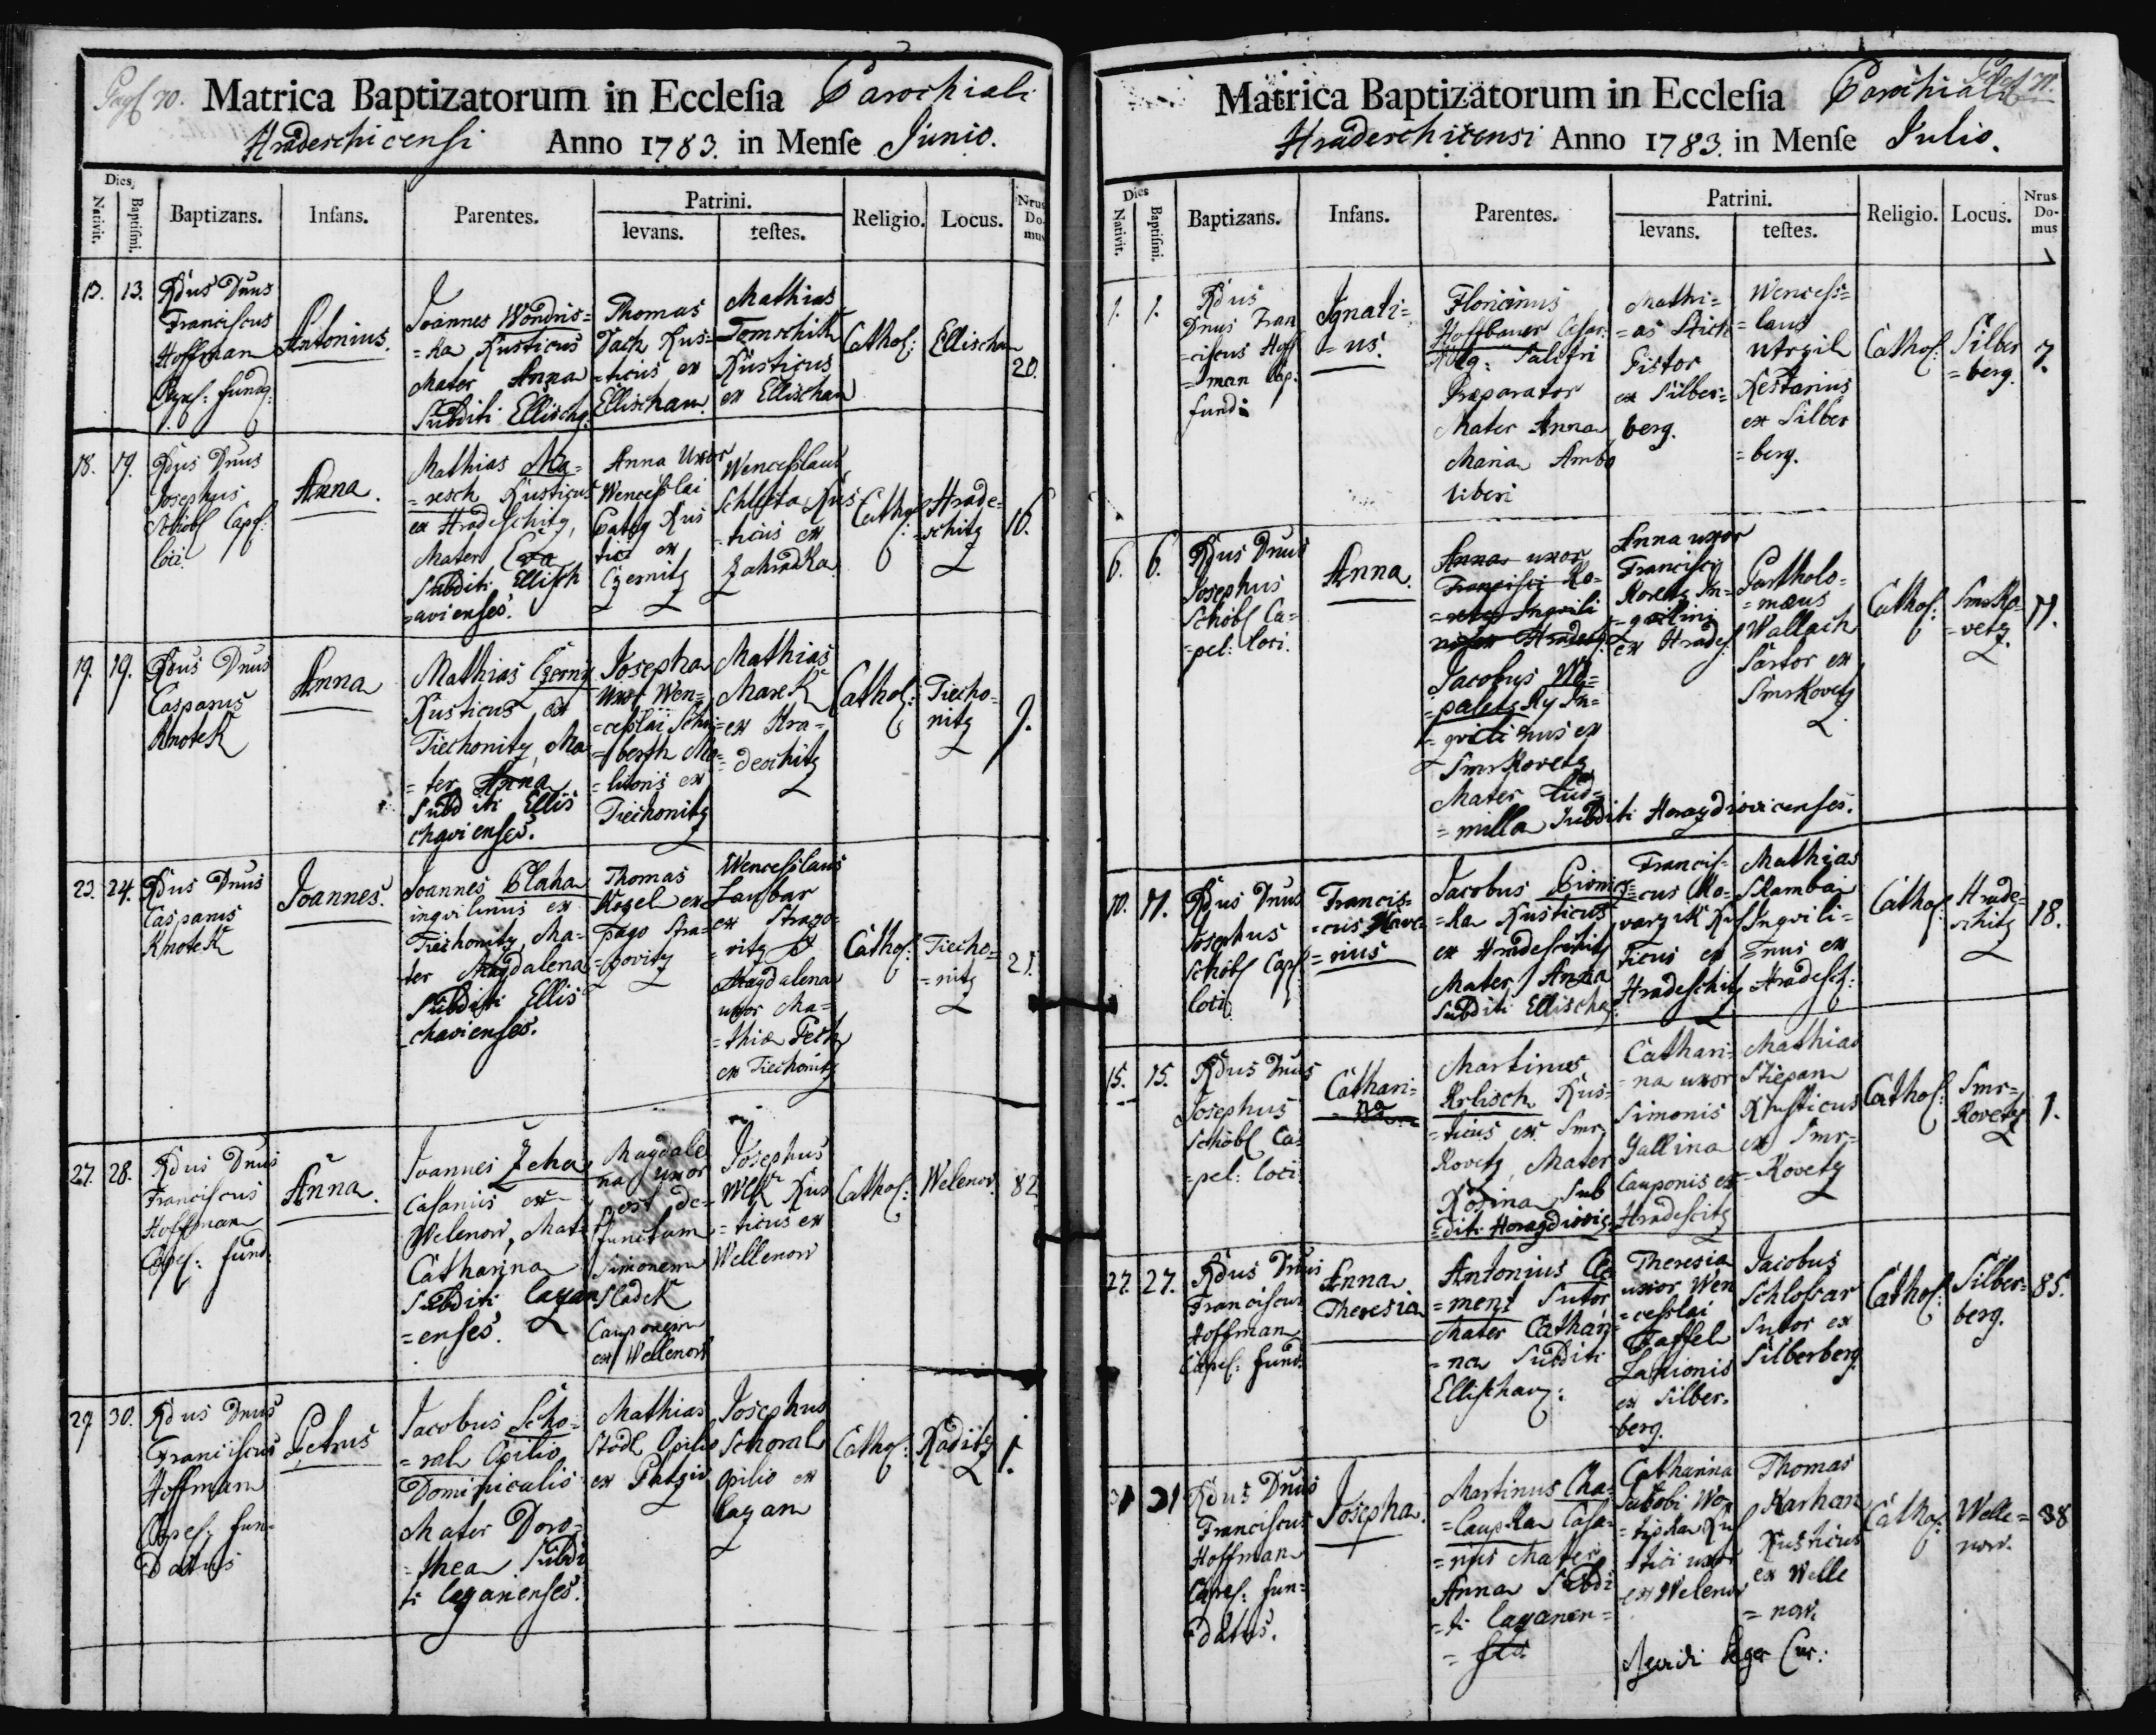 Pag 70. Matrica Baptizatorum in Ecclesia Parochiali
Hradeschicensi Anno 1783. in Mense Junio.
Dies
Nativit. Baptismi. Baptizans. Infans. Parentes. Patrini. levans. testes. Religio. Locus. Nrus Domus
13. 13.
Rdus Dnus
Franciscus
Hoffman
Antonius.
Joannes Wondris=
=ka Rusticus
Mater Anna
Subditi Ellischa:
Thomas
Jach Rus=
=ticus ex
Ellischau.
Mathias
Tomschik
Rusticus
ex Ellischau
Cathol:
Ellischau
20.
18. 19.
Rdus Dnus
Josephus
Schöbl Capl:
loci
Anna.
Mathias Ma=
=resch Rusticus
ex Hradeschitz,
Mater Eva
Subditi Ellisch
=avienses.
Anna Uxor
Wenceslai
Rus
tici ex
Czernitz
Wenceslaus
Schlesta Rus
=ticus ex
Zahradka
Cathol:
Hrade=
=schitz
16.
19. 19.
Rdus Dnus
Casparus
Knotek
Anna
Mathias Czerny
Rusticus ex
Tiechonitz, Ma
=ter Anna
Subditi Ellis
chavienses.
Josepha
Uxor Wen=
=ceslai
Mo=
=litoris ex
Tiechonitz
Mathias
Marek
ex Hra=
=deschitz
Cathol:
Tiecho=
nitz
9.
23. 24.
Rdus Dnus
Casparus
Knotek
Joannes.
Joannes Blaha
inqvilinus ex
Tiechonitz, Ma=
ter Magdalena
Subditi Ellis
=chavienses.
Thomas
Kozel ex
pago Stra=
=govitz
Wenceslaus
Laubar
ex Strago=
=vitz et
Magdalena
uxor Ma=
=thiæ Pech
ex Tiechonitz
Cathol:
Tiecho=
=nitz
21.
27. 28.
Rdus Dnus
Franciscus
Hoffman
Capel: fund:
Anna.
Joannes Zeha
Casarius ex
Welenow, Mat:
Catharina
Subditi Cazan
=enses.
Magdale
na uxor
post de=
functum
Simonem
Sladek
Cauponem
ex Wellenow
Josephus
Welk Rus
=ticus ex
Wellenow
Cathol:
Welenov.
82
29 30.
Rdus Dnus
Franciscus
Hoffman
Capel: fun=
Datus
Petrus
Jacobus Scho=
=ral Opilio
Dominicalis
Mater Doro=
=thea Subdi
ti Cazanenses.
Mathias
Stodl Opilio
ex
Josephus
Schoral
opilio ex
Cazan
Cathol:
Raditz
1.
Matrica Baptizatorum in Ecclesia Parochiali Pag 71.
Hradeschicensi Anno 1783. in Mense Julio.
Dies
Nativit. Baptismi. Baptizans. Infans. Parentes. Patrini. levans. testes. Religio. Locus. Nrus Domus
1. 1.
Rdus
Dnus Fran
=ciscus Hoff
=man Cap:
fund:
Ignati=
=us.
Florianus
Hoffbauer Cesar:
Reg: Salitri
Præparator
Mater Anna
Maria Ambo
liberi
Mathi=
=as Stich
Pistor
ex Silber=
berg.
Wencess=
=laus
Restarius
ex Silber
=berg.
Cathol:
Silber
=berg.
7.
6. 6.
Rdus Dnus
Josephus
Schöbl Ca=
=pel: loci.
Anna.
Anna uxor
Francisci Ko=
=retz Inqvili
Jacobus Wo=
=paletzky In=
=qvilinus ex
Smrkovetz
Mater Lud=
=milla Subditi Horazdiovicenses.
Anna uxor
Francisci
Koretz In=
=qvilini
ex Hrades:
Bartholo=
=mæus
Wallach
Sartor ex
Smrkovetz
Cathol:
Smrko
=vetz.
11.
10. 11.
Rdus Dnus
Josephus
Schöbl Capl:
loci
Francis=
=cus Xave=
=rius
Jacobus
=ka Rusticus
ex Hradeschitz
Mater Anna
Subditi Ellischa:
Francis=
=cus Mo=
varzik Rus
ticus ex
Hradeschitz
Mathias
Skamba
Inqvili=
=nus ex
Hradesch:
Cathol:
Hrade=
=schitz
18.
15. 15.
Rdus Dnus
Josephus
Schöbl Ca=
=pel: loci
Cathari=
=na.
Martinus
Krlisch Rus=
=ticus ex Smr
kovetz, Mater
Rosina Sub
=diti Horazdiovic
Cathari=
=na uxor
Simonis
Gallina
Cauponis ex
Hradescitz
Mathias
Stiepan
Rusticus
ex Smr=
=kovetz
Cathol:
Smr=
kovetz
1.
27. 27.
Rdus Dnus
Franciscus
Hoffman
Capel: fund:
Anna
Theresia
Antonius Cle
=ment Sutor
Mater Cathari
=na Subditi
Ellischav:
Theresia
uxor Wen
=ceslai
Taffel
Lanionis
ex Silber=
berg.
Jacobus
Schlossar
Sutor ex
Silberberg.
Cathol:
Silber=
berg.
85.
31 31
Rdus Dnus
Franciscus
Hoffman
Capel: fun=
=datus.
Josepha.
Martinus Cha=
=laupka Casa=
=rius Mater
Anna Subdi
=ti Cazanen=
=ses
Catharina
Jacobi
Rus
=tici uxor
ex Welenow
Thomas
Karhan
Rusticus
ex Welle
=now.
Cathol:
Welle=
now.
38